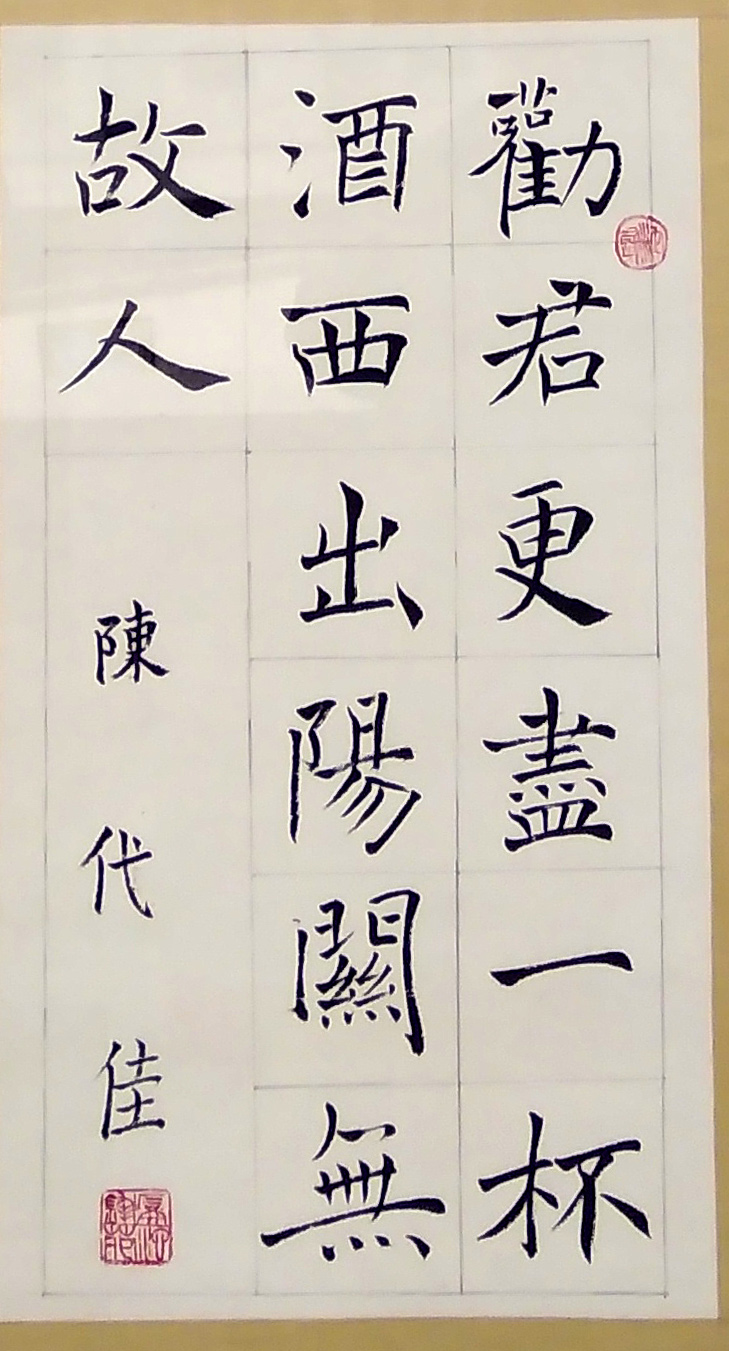 勸君更盡一杯
酒西出陽關無
故人
陳代佳